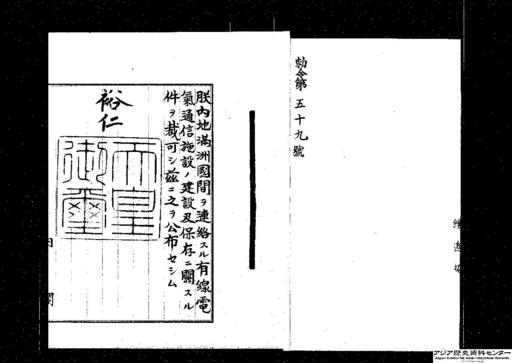 勅令第五十九號
朕內地滿洲國間ヲ連絡スル有線電
氣通信施設ノ建設及保存ニ關スル
件ヲ裁可シ茲ニ之ヲ公布セシム
裕仁
天皇
御璽
內閣
アジア歴史資料センター
Japan Center for Asian Historical Records